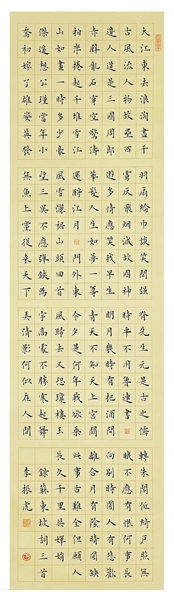 大江東去浪淘盡千
古風流人物故壘西
邊人道是三國周郎
赤壁亂石穿空驚濤
拍岸捲起千堆雪江
山如畫一時多少豪
傑遙想公瑾當年小
喬初嫁了雄姿英發
羽扇綸巾談笑間強
虜灰飛煙滅故國神
遊多情應笑我早生
華髮人生如夢一尊
還酹江月 門外東
風雪灑裾山頭回首
望三吳不應彈鋏為
無魚上黨從來天下
脊先生元是古之儒
時平不用魯連書
明月幾時有把酒問
青天不知天上宮闕
今夕是何年我欲乘
風歸去又恐瓊樓玉
宇高處不勝寒起舞
弄清影何似在人間
轉朱閣低綺戶照無
眠不應有恨何事長
向別時圓人有悲歡
離合月有陰晴圓缺
此事古難全但願人
長久千里共嬋娟
錄蘇東坡詞三首
李振虎